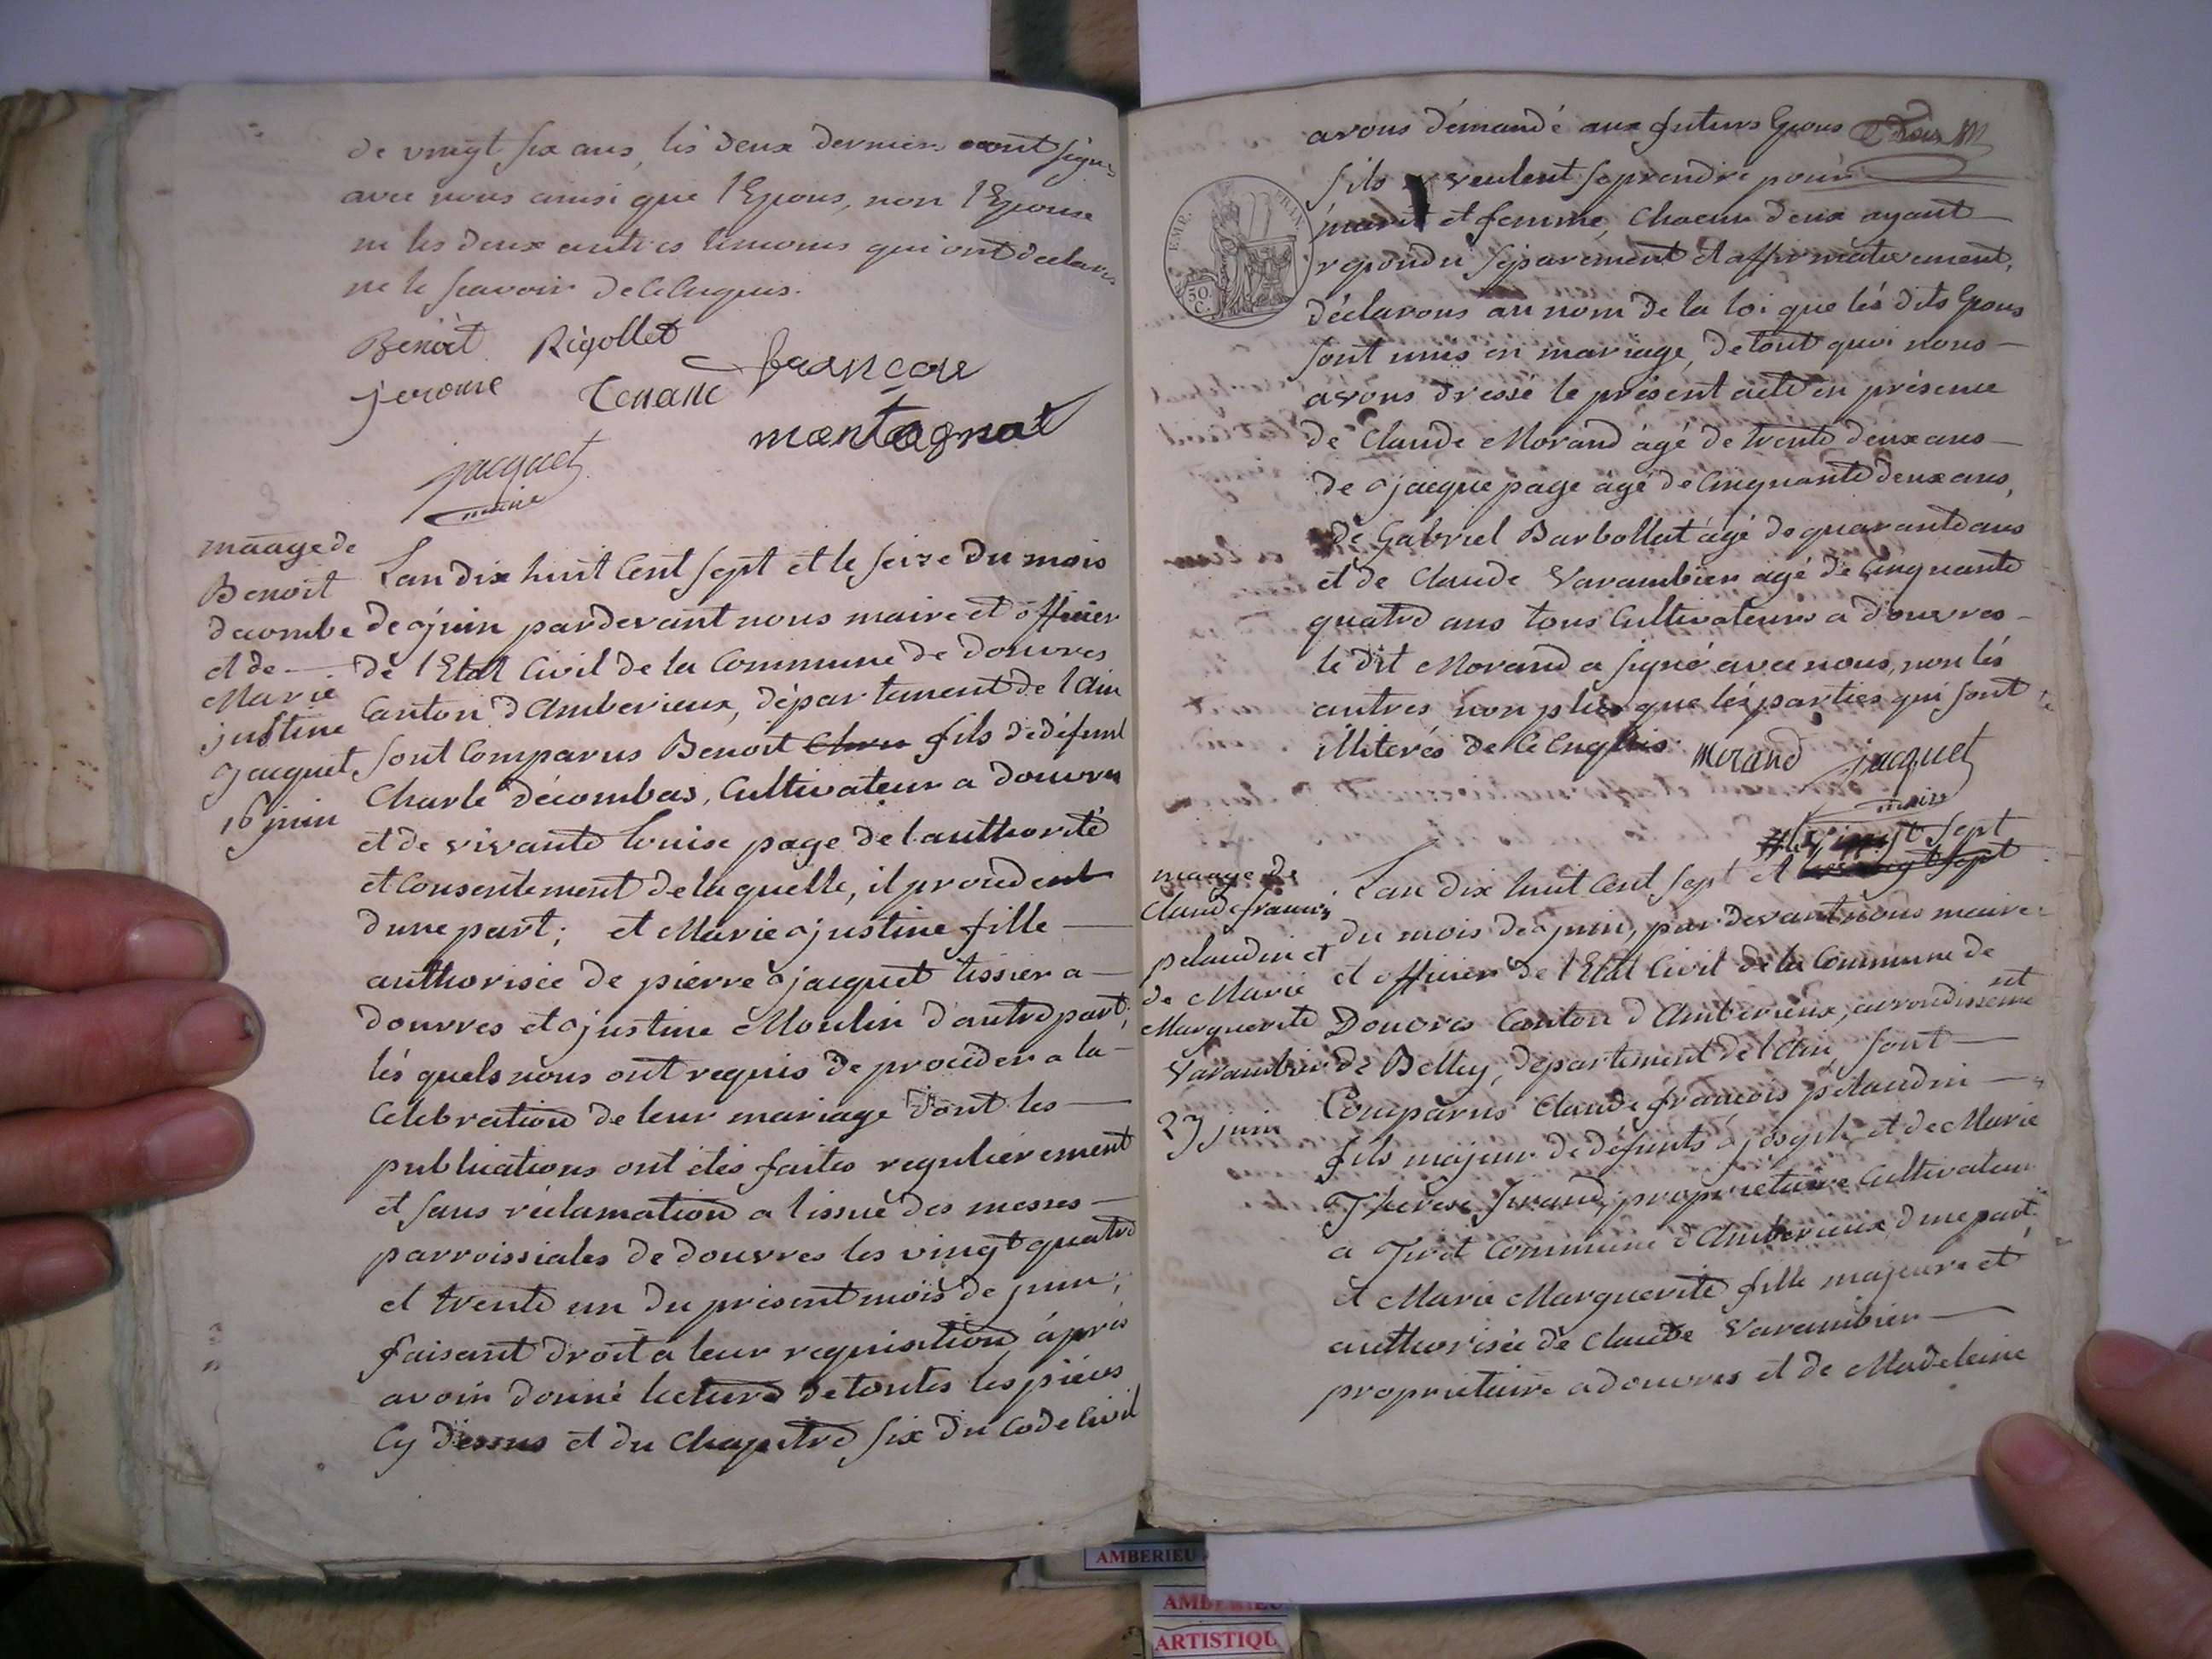 de vingt six ans, les deux derniers ont signé
avec nous ainsi que l'Epous, non l'Epouse
ni les deux autres temoins qui ont declarés
ne le scavoir de ce enquis.
Benoit Rigollet
françois
jerome Tenanc
montagnat
jacquet
maire
maage de
Benoit
decombe
et de
Marie
justine
jacquet
16 juin
Lan dix huit cent sept et le seize du mois
de juin pardevant nous maire et officier
de l'Etat Civil de la Commune de douvres
Canton d'Amberieux, département de l'Ain
sont Comparus Benoit fils de défunt
Charle décombas, Cultivateur a douvres
et de vivante Louise page de l'authorité
et consentement de laquelle, il procede
d'une part; et Marie justine fille
authorisée de pierre jacquet tissier a
douvres et justine Moulin d'autre part;
lés quels nous ont requis de proceder a la
Celebration de leur mariage dont les
publications ont étés faites regulièrement
et sans réclamation a lissue des messes
parroissiales de douvres les vingt quatre
et trente un du présent mois de juin;
faisant droit a leur requisition, après
avoir donné lecture de toutes les pièces
Cy dessus et du Chapitre six du Code Civil
avons démandé aux futurs Epous
sils veulent se prendre pour
EMP.
50.
C.
marit et femme, Chacun deux ayant
repondu séparement et affirmativement,
déclarons au nom de la loi que lés dits Epous
sont unis en mariage, de tout quoi nous
avons dressé le présent acte en présence
de Claude Morand âgé de trente deux ans
de jacque page âgé de Cinquante deux ans,
de Gabriel Barbollat âgé de quarante ans
et de Claude Varambier agé de Cinquante
quatre ans tous Cultivateurs a douvres
le dit Morand a signé avec nous, non lés
autres non plus que lés parties qui sont
illiterés de ce Enquis
Morand jacquet
maire
#le vingt sept
maage de
Claude francois
pelaudin et
de Marie
Marguerite
Varambier
27 juin
Lan dix huit Cent sept et le vingt sept
du mois de juin, par devant nous maire
et officier de l'Etat Civil de la Commune de
Douvres Canton d'Amberieux, arrondissement
de Belley, département de l'Ain, sont
Comparus Claude francois pelaudin
fils majeur de défunts joseph et de Marie
Therese, propriétaire Cultivateur
a Tiret Commune d'Amberieux, d'une part,
et Marie Marguerite fille majeure et
authorisée de Claude Varambier
propriétaire a douvres et de Madeleine
AMBERIEU
AMBERIEU
ARTISTIQU